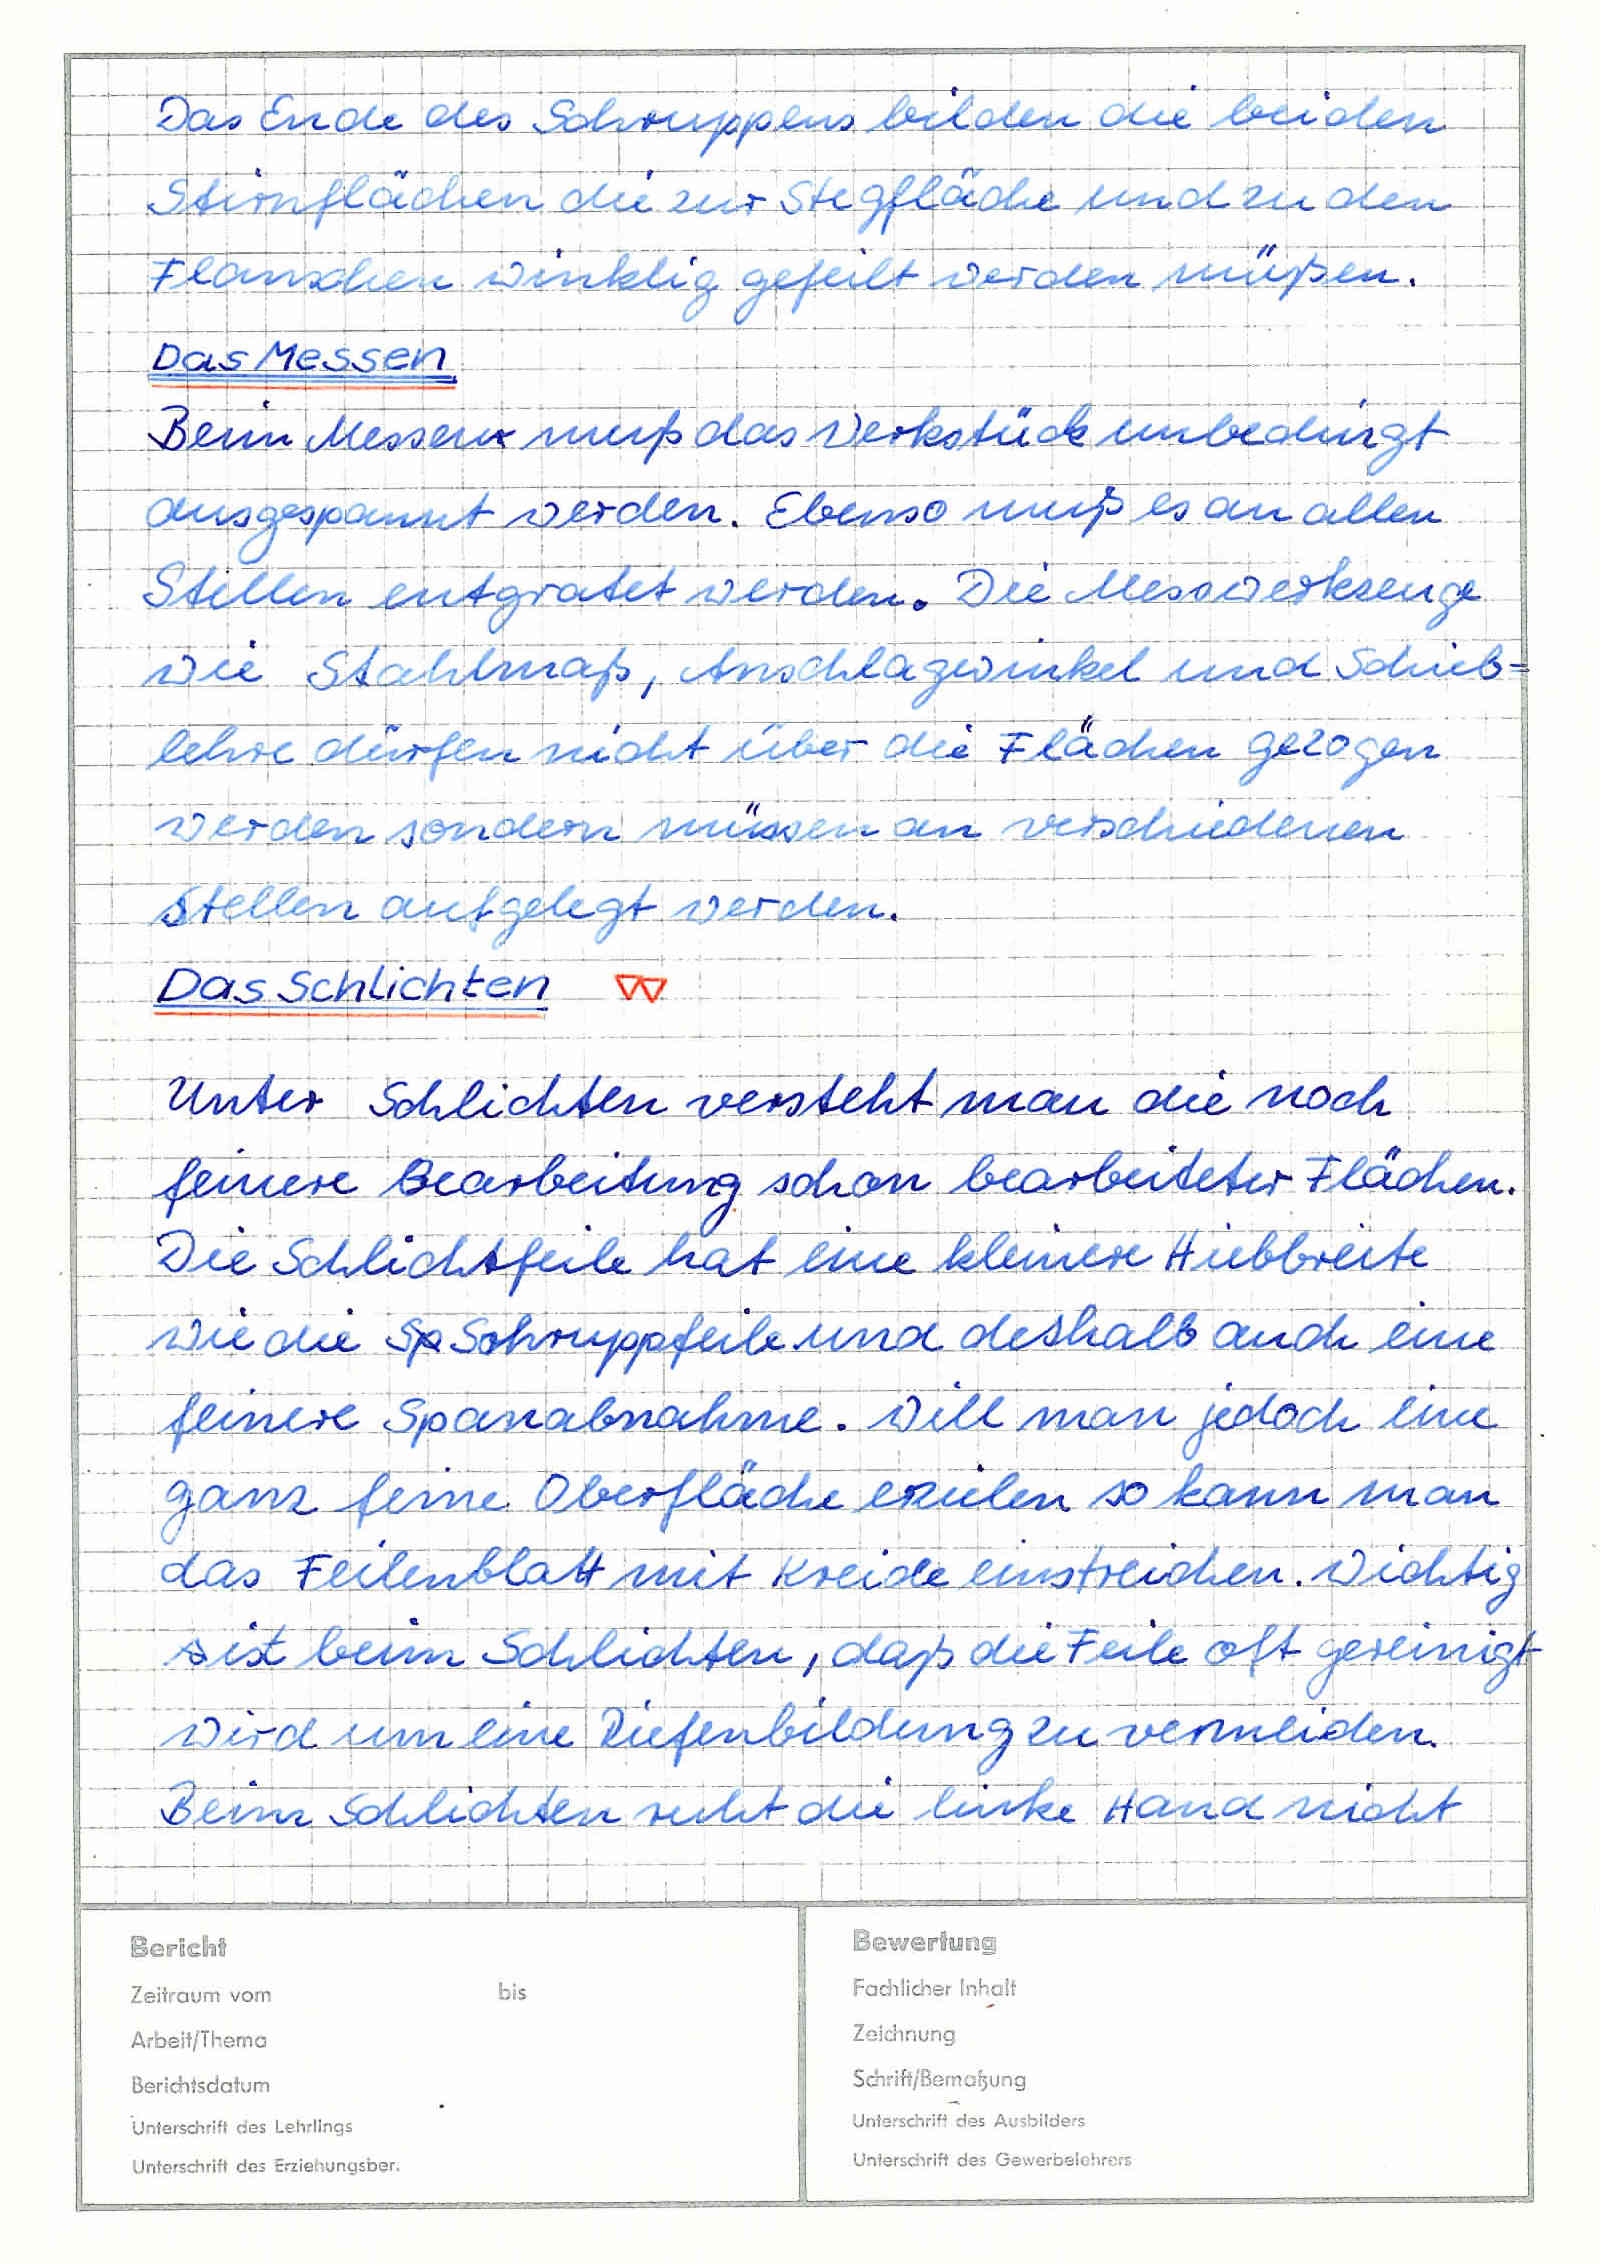 Das Ende des Schruppens bilden die beiden
Stirnflächen die zur Stegfläche und zu den
Flanschen winklig gefeilt werden müßen.
Das Messen
Beim Messen muß das Werkstück unbedingt
ausgespannt werden. Ebenso muß es an allen
Stellen entgratet werden. Die Messwerkzeuge
wie Stahlmaß, Anschlagwinkel und Schieb=
lehre dürfen nicht über die Flächen gezogen
werden sondern müssen an verschiedenen
Stellen aufgelegt werden.
Das Schlichten ▽▽
Unter Schlichten versteht man die noch
feinere Bearbeitung schon bearbeiteter Flächen.
Die Schlichtfeile hat eine kleinere Hiebbreite
wie die Schruppfeile und deshalb auch eine
feinere Spanabnahme. Will man jedoch eine
ganz feine Oberfläche erzielen so kann man
das Feilenblatt mit Kreide einstreichen. Wichtig
ist beim Schlichten, daß die Feile oft gereinigt
wird um eine Riefenbildung zu vermeiden.
Beim Schlichten ruht die linke Hand nicht
Bericht
Zeitraum vom bis
Arbeit/Thema
Berichtsdatum
Unterschrift des Lehrlings
Unterschrift des Erziehungsber.
Bewertung
Fachlicher Inhalt
Zeichnung
Schrift/Bemaßung
Unterschrift des Ausbilders
Unterschrift des Gewerbelehrers